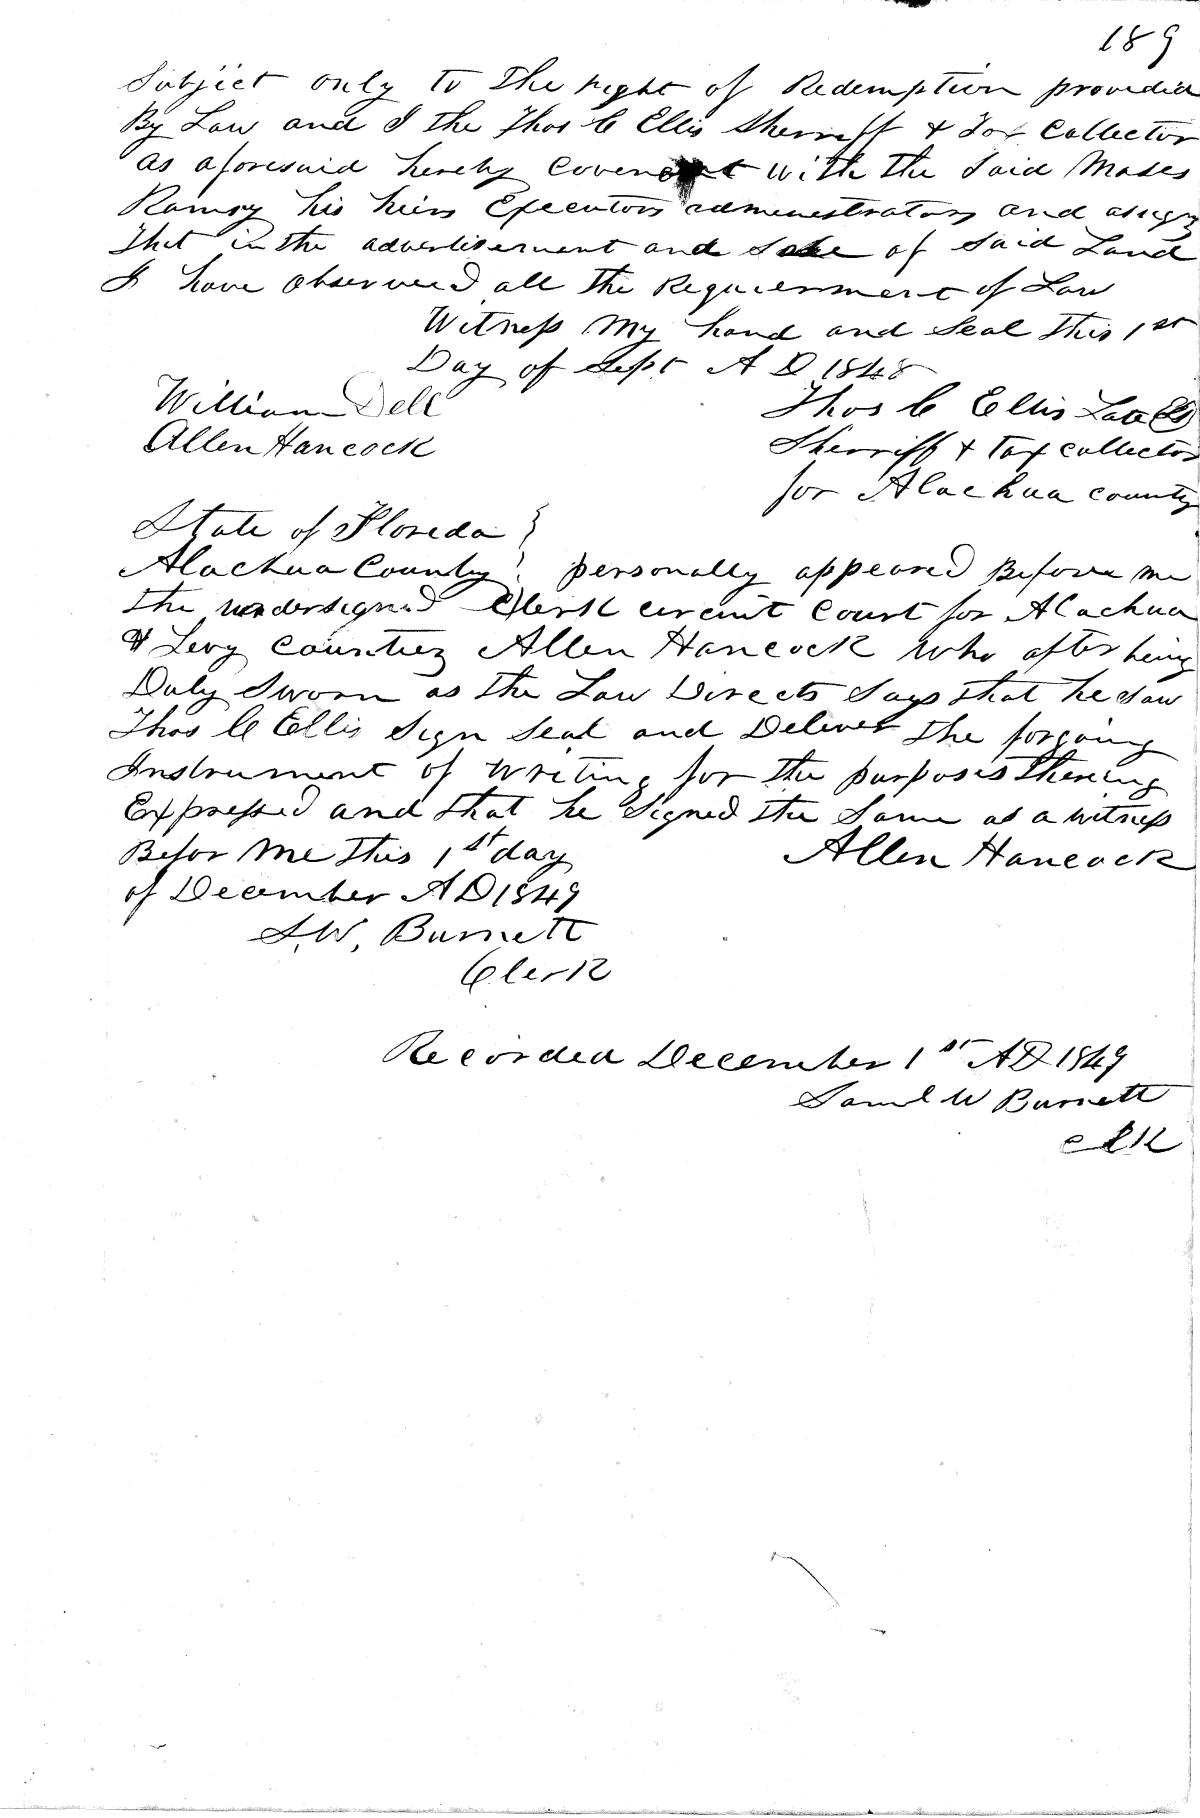 189
Subject only to the right of Redemption provided
By Law and I the Thos C Ellis Sherriff & Tax Collector
as aforesaid hereby covenant with the Said Moses
Ramsy his heirs Executors administrators and assigns
that in the advertisement and Sale of Said Land
I have observed all the Requierment of Law
Witness My hand and Seal this 1st
Day of Sept A D 1848
William Dell
Thos C Ellis Late LS
Allen Hancock
Sherriff & Tax collector
for Alachua county
State of Floreda }
Alachua County } personally appeared Before me
the undersigned Clerk circuit Court for Alachua
& Levy Countiez Allen Hancock who after being
Duly Sworn as the Law Directs Says that he saw
Thos C Ellis Sign Seal and Deliver the forgoing
Instrument of writing for the purposes thereing
Expressed and that he Signed the Same as a witness
Befor me this 1st day
Allen Hancock
of December A D 1849
S. W. Burnett
Clerk
Recorded December 1st AD 1849
Saml W Burnett
clk